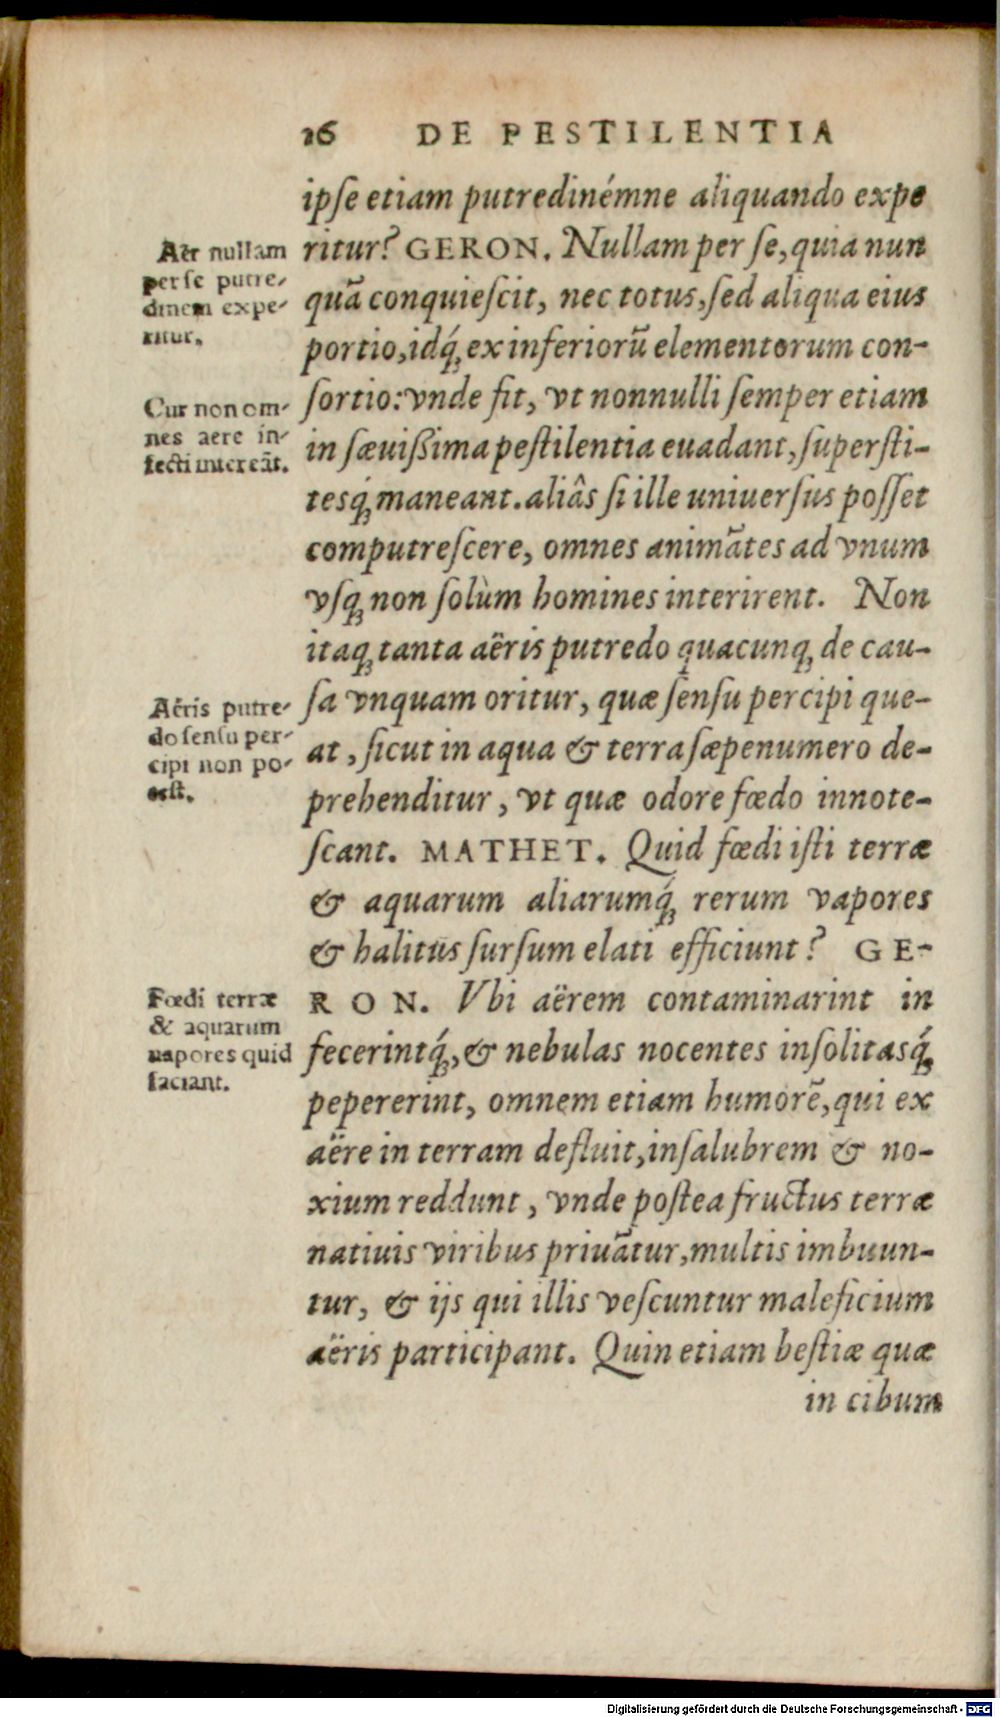 16 DE PESTILENTIA
ipſe etiam putredinémne aliquando expe
ritur? GERON. Nullam per ſe, quia nun
quã conquieſcit, nec totus, ſed aliqua eius
portio, idq́ʒ ex inferiorũ elementorum con-
ſortio: vnde fit, vt nonnulli ſemper etiam
in ſæuiſſima peſtilentia euadant, ſuperſti-
tesq́ʒ maneant. aliâs ſi ille uniuerſus poſſet
computreſcere, omnes animãtes ad vnum
vſqʒ non ſolùm homines interirent. Non
itaqʒ tanta aëris putredo quacunqʒ de cau-
ſa vnquam oritur, quæ ſenſu percipi que-
at, ſicut in aqua & terra ſæpenumero de-
prehenditur, vt quæ odore fœdo innote-
ſcant. MATHET. Quid fœdi iſti terræ
& aquarum aliarumq́ʒ rerum vapores
& halitus ſurſum elati efficiunt? GE-
RON. Vbi aërem contaminarint in
fecerintq́ʒ, & nebulas nocentes inſolitasq́ʒ
pepererint, omnem etiam humorẽ, qui ex
aëre in terram defluit, inſalubrem & no-
xium reddunt, vnde poſtea fructus terræ
natiuis viribus priuãtur, multis imbuun-
tur, & ijs qui illis veſcuntur maleficium
aëris participant. Quin etiam beſtiæ quæ
in cibum
Aër nullam
per ſe putre-
dinem expe-
ritur.
Cur non om-
nes aere in-
fecti intereãt.
Aëris putre-
do ſenſu per-
cipi non po-
teſt.
Fœdi terræ
& aquarum
uapores quid
faciant.
Digitalisierung gefördert durch die Deutsche Forschungsgemeinschaft - DFG